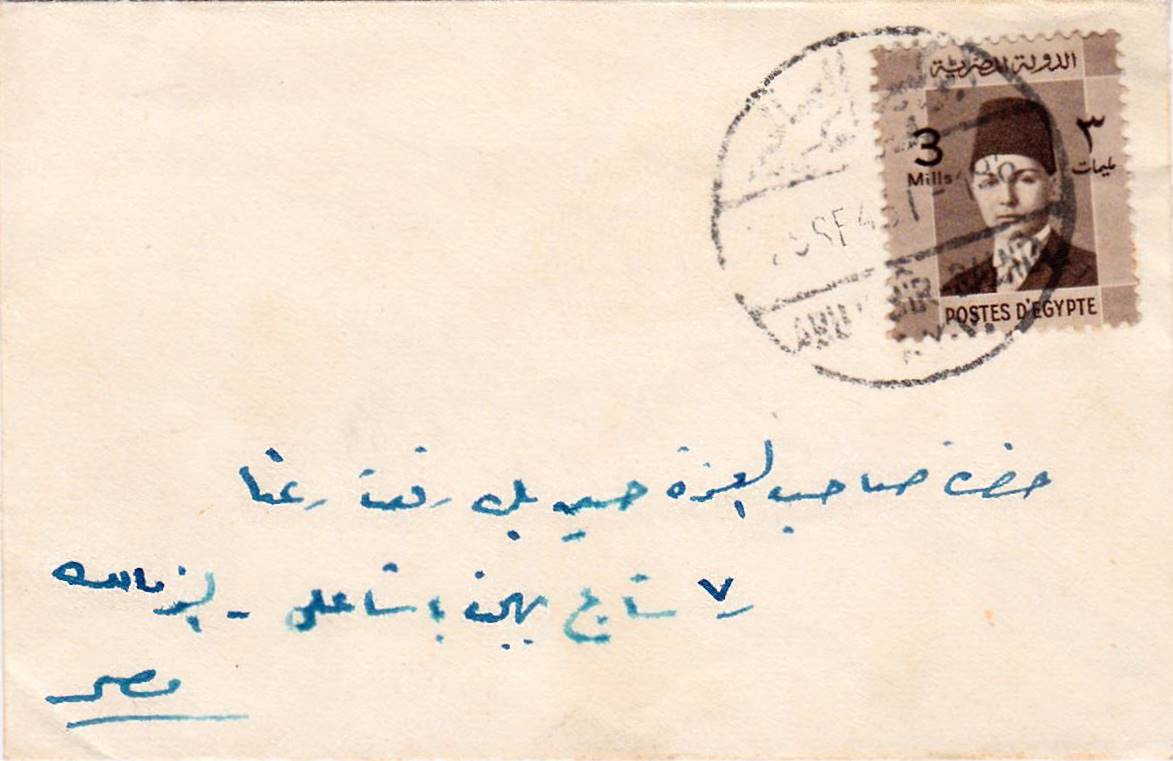 الدولة المصرية
3 ٣
Mills مليمات
POSTES D'EGYPTE
SE 4
ABU
حضرة صاحب العزة حسين بك رفعت رضا
٧ شارع بهجت باشا على - الزمالك
مصر